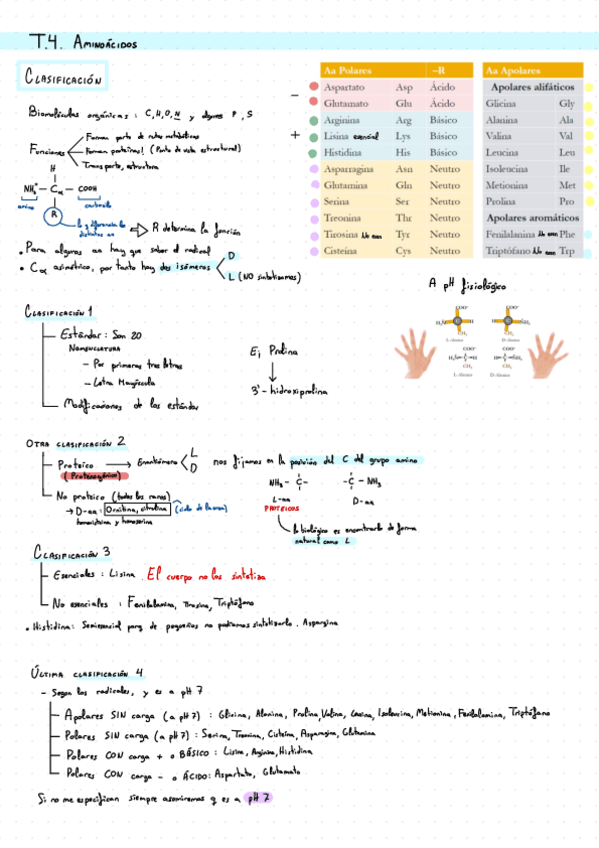 T.4. AMINOÁCIDOS
CLASIFICACIÓN
Biomoléculas orgánicas : C, H, O, N y algunos P, S
Funciones
Forman parte de rutas metabólicas
Forman proteínas! (Punto de vista estructural)
Transporte, estructura
H
NH3+ — Cα — COOH
amino
carboxilo
R
lo q diferencia los
distintos aa
R determina la función
• Para algunos aa hay que saber el radical
• Cα asimétrico, por tanto hay dos isómeros
D
L (NO sintetizamos)
Aa Polares –R
− Aspartato Asp Ácido
Glutamato Glu Ácido
Arginina Arg Básico
+ Lisina esencial Lys Básico
Histidina His Básico
Asparragina Asn Neutro
Glutamina Gln Neutro
Serina Ser Neutro
Treonina Thr Neutro
Tirosina No esen Tyr Neutro
Cisteína Cys Neutro
Aa Apolares
Apolares alifáticos
Glicina Gly
Alanina Ala
Valina Val
Leucina Leu
Isoleucina Ile
Metionina Met
Prolina Pro
Apolares aromáticos
Fenilalanina No esen Phe
Triptófano No esen Trp
A pH fisiológico
COO⁻ COO⁻
H₃N H
CH₃ CH₃
L-Alanina D-Alanina
COO⁻ COO⁻
CH₃ CH₃
L-Alanina D-Alanina
CLASIFICACIÓN 1
Estándar : Son 20
NOMENCLATURA
— Por primeras tres letras
— Letra Mayúscula
Modificaciones de los estándar
Ej Prolina
3'- hidroxiprolina
OTRA CLASIFICACIÓN 2
Proteico → Enantiómero L
D
(Proteinogénico)
nos fijamos en la posición del C del grupo amino
NH3 - C -
- C - NH3
L-aa
D-aa
PROTEICOS
No proteico (todos los raros)
→ D-aa : Ornitina, citrulina (ciclo de la urea)
homocisteína y homoserina
lo biológico es encontrarlo de forma
natural como L
CLASIFICACIÓN 3
Esenciales : Lisina . El cuerpo no los sintetiza
No esenciales : Fenilalanina, Tirosina, Triptófano
• Histidina: Semiesencial porq de pequeños no podíamos sintetizarlo . Aspargina
ÚLTIMA CLASIFICACIÓN 4
- Según los radicales, y es a pH 7
Apolares SIN carga (a pH 7) : Glicina, Alanina, Prolina, Valina, Leucina, Isoleucina, Metionina, Fenilalanina, Triptófano
Polares SIN carga (a pH 7) : Serina, Treonina, Cisteína, Asparagina, Glutamina
Polares CON carga + o BÁSICO : Lisina, Arginina, Histidina
Polares CON carga - o ÁCIDO : Aspartato, Glutamato
Si no me especifican siempre asumiremos q es a pH 7